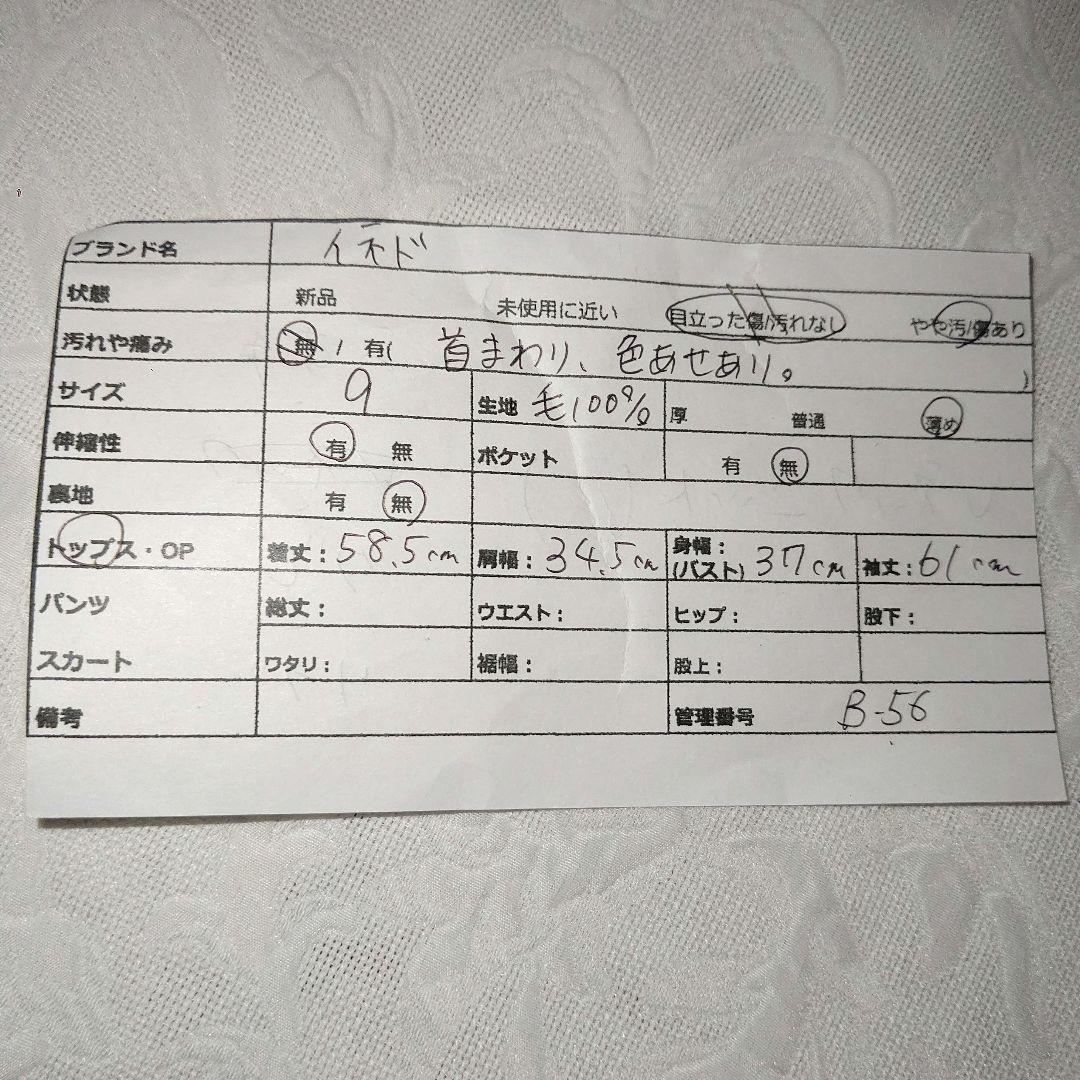 ブランド名 イネド
状態 新品 未使用に近い 目立った傷/汚れなし やや汚/傷あり
汚れや痛み 無 / 有( 首まわり、色あせあり。 )
サイズ 9 生地 毛100% 厚 普通 薄め
伸縮性 有 無 ポケット 有 無
裏地 有 無
トップス・OP 着丈:58.5cm 肩幅:34.5cm 身幅:(バスト) 37cm 袖丈:61cm
パンツ 総丈: ウエスト: ヒップ: 股下:
スカート ワタリ: 裾幅: 股上:
備考 管理番号 B-56